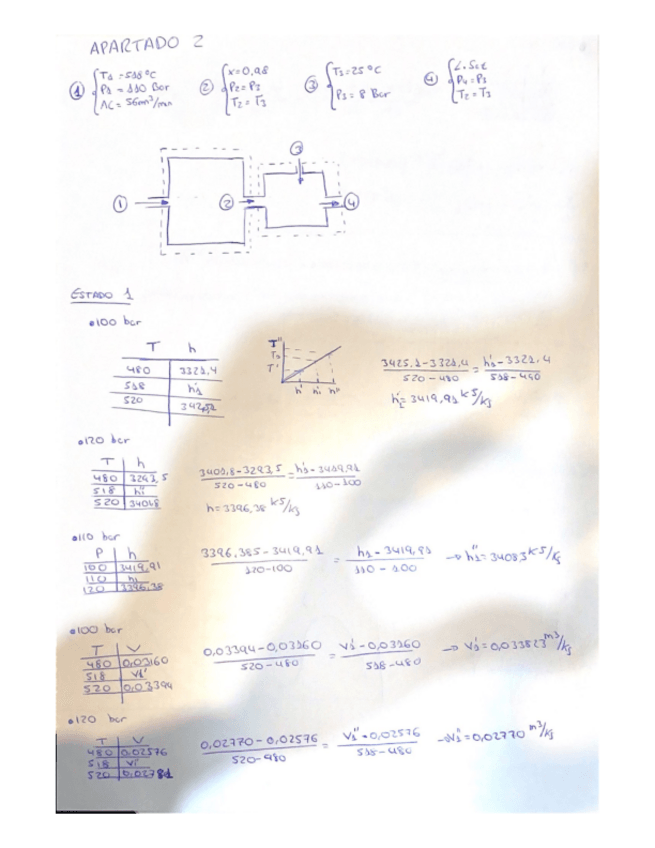 APARTADO 2
① { T1 = 518 ºC ② { x = 0,98 ③ { T3 = 25 ºC ④ { L. Sat
P1 = 110 Bar P2 = P3 P3 = 8 Bar P4 = P3
AC = 56 m³/min T2 = T3 T2 = T3
③
① ② ④
ESTADO 1
• 100 bar
T h
480 3321,4
518 h'1
520
T" T1 T'
h' h1 h"
3425,1 - 3321,4 / 520 - 480 = h'1 - 3321,4 / 518 - 480
h'1 = 3419,91 kJ/kg
• 120 bar
T h
480 3293,5
518 h"1
520 3401,8
3401,8 - 3293,5 / 520 - 480 = h'1 - 3419,91 / 110 - 100
h = 3396,38 kJ/kg
• 110 bar
P h
100 3419,91
110 h1
120 3396,38
3396,385 - 3419,91 / 120 - 100 = h1 - 3419,91 / 110 - 100 → h"1 = 3408,3 kJ/kg
• 100 bar
T V
480 0,03160
518 V1'
520 0,03394
0,03394 - 0,03160 / 520 - 480 = V1' - 0,03160 / 518 - 480 → V1' = 0,033823 m³/kg
• 120 bar
T V
480 0,02576
518 V1"
520
0,02770 - 0,02576 / 520 - 480 = V1" - 0,02576 / 518 - 480 → V1" = 0,02770 m³/kg